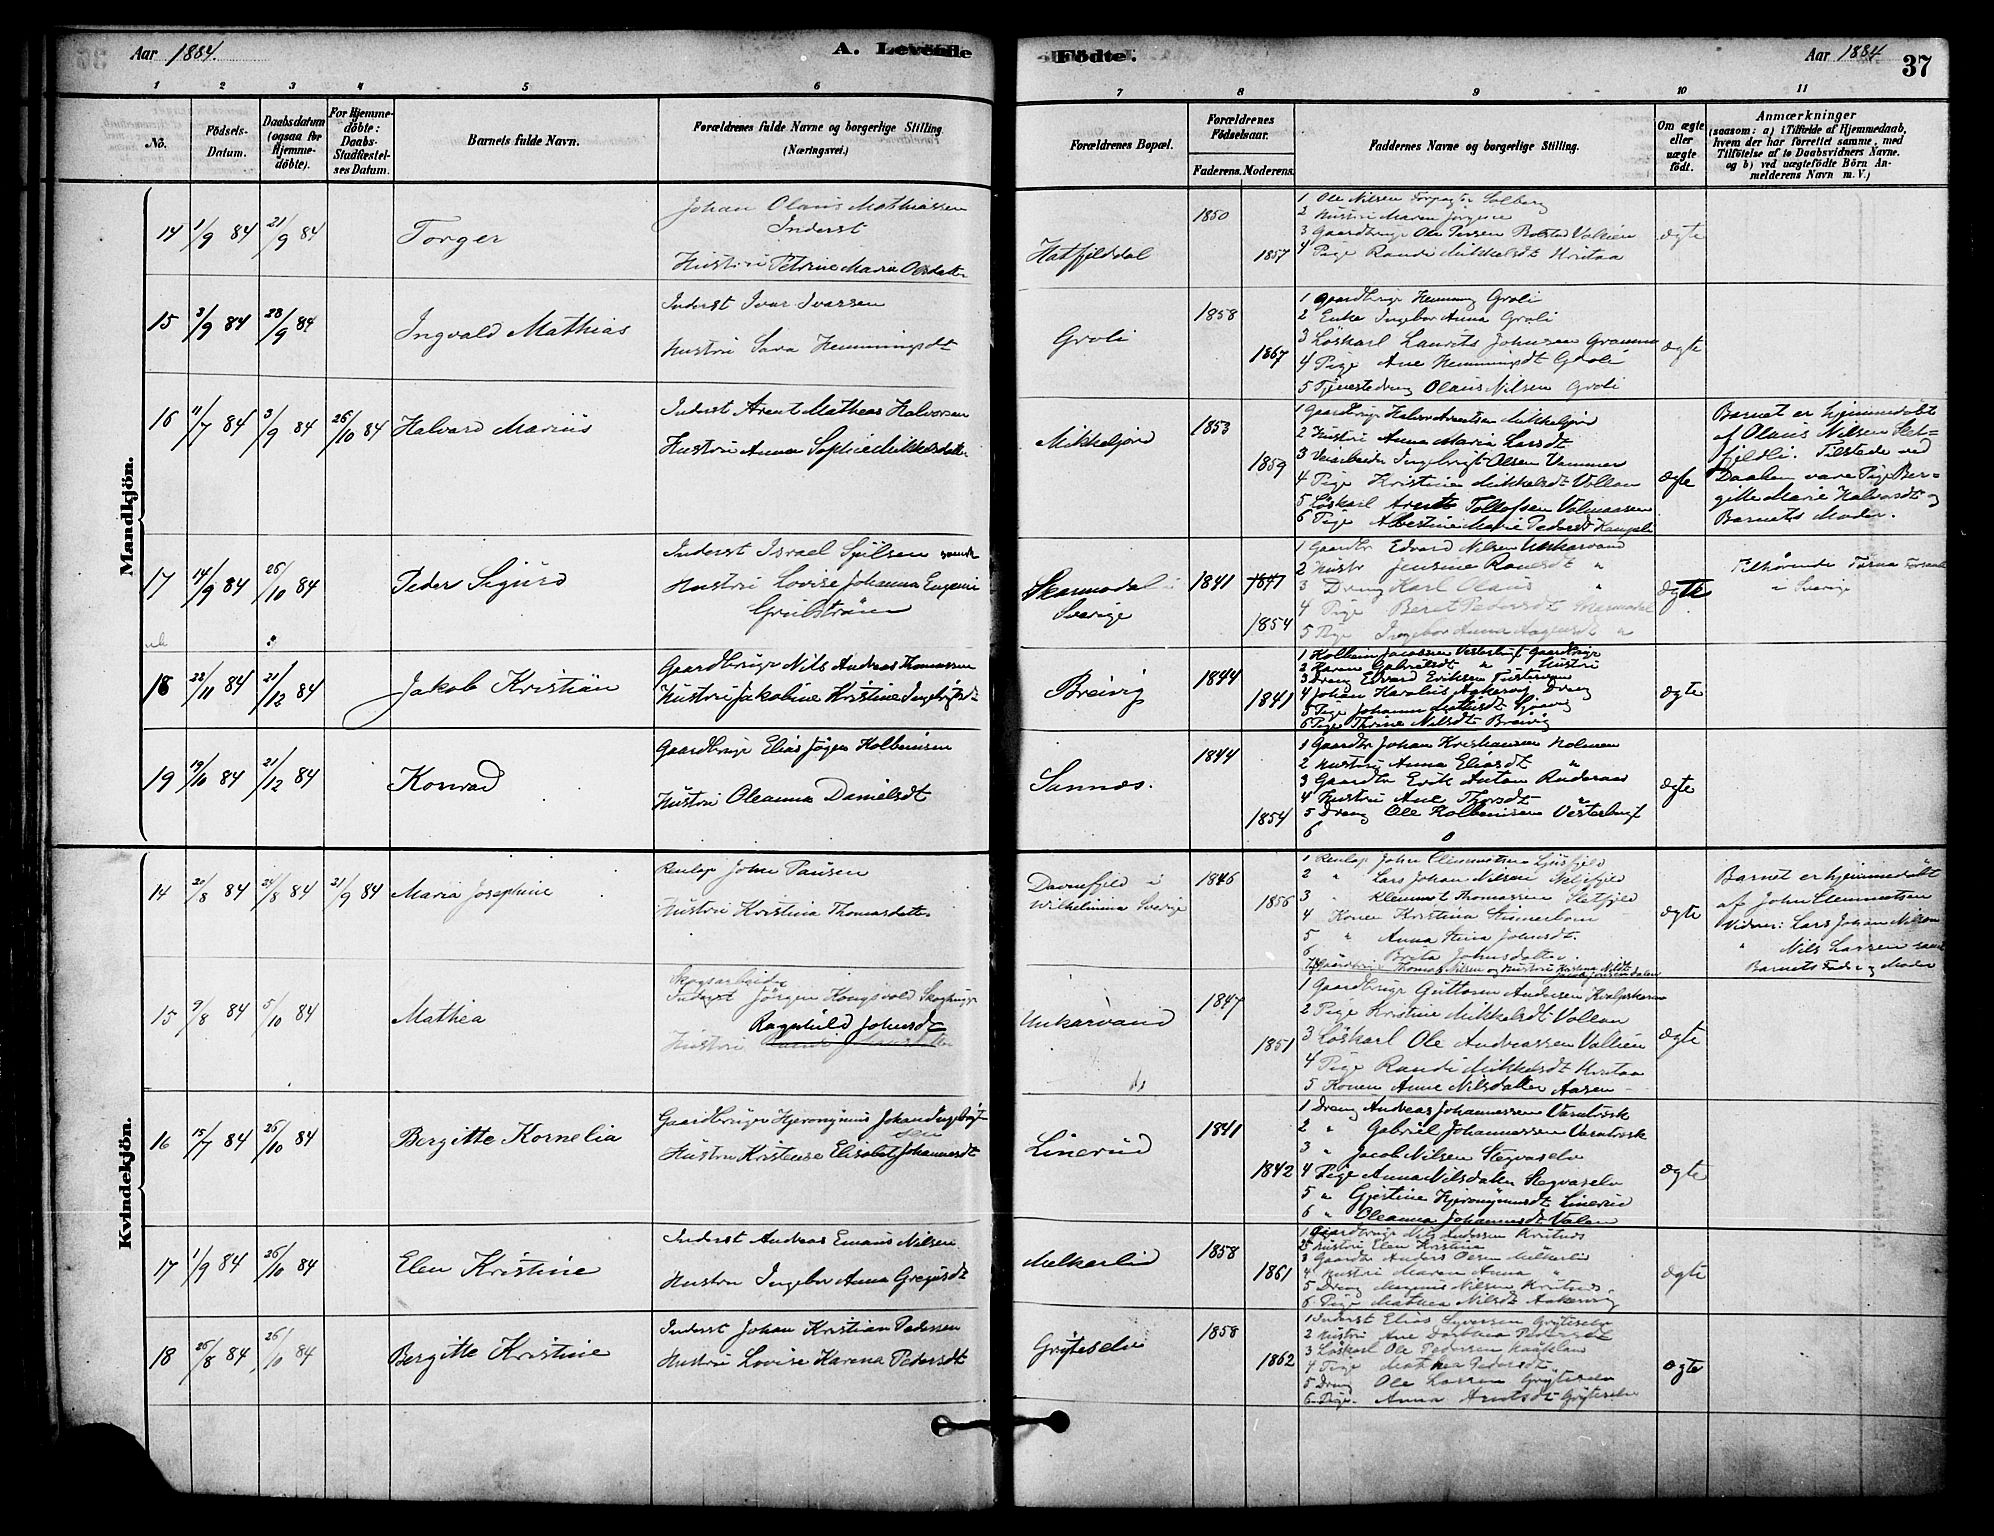 Aar 1884.
A. Levende
Födte.
Aar 1884
37
1 2 3 4 5 6 7 8 9 10 11
No.
Födsels-Datum.
Daabsdatum (ogsaa for Hjemme-döbte).
For Hjemme-döbte: Daabs-Stadfæstelses Datum.
Barnets fulde Navn.
Forældrenes fulde Navne og borgerlige Stilling.
(Næringsvei.)
Forældrenes Bopæl.
Forældrenes Födselsaar.
Faderens. Moderens.
Faddernes Navne og borgerlige Stilling.
Om ægte eller uægte födt.
Anmærkninger
(saasom: a) i Tilfælde af Hjemmedaab,
hvem der har forrettet samme, med
Tilföielse af to Daabsvidners Navne,
og b) ved uægtefödte Börn An-
melderens Navn m. V.)
Mandkjön.
14 1/9 84 21/9 84 Torger
Johan Olaus Mathiassen
Inderst
Hustru Petrine Maria Olsdatter
Hatfjelddal 1850 1857
1 Ole Nilsen Forpagter Solberg
2 Hustru Maren Jørgine
3 Gaardbruge Ole Persen
4 Pige Randi Mikkelsdt Kritaa
ægte
15 3/9 84 28/9 84 Ingvald Mathias
Inderst Ivar Ivarsen
Hustru Sara Hemmingsdt
Groli 1858 1867
1 Gaardbruge Hemming Groli
2 Enke Ingebor Anna Groli
3 Løskarl Laurits Johnsen
4 Pige Ane Hemmingsdt Groli
5 Tjenestedreng Olaus Nilsen Groli
ægte
16 11/7 84 3/9 84 26/10 84 Halvard Marius
Inderst Arent Mathias Halvorsen
Hustru Anna Sophie Mikkelsdatter
Mikkeljord 1853 1859
1 Gaardbruge Halvor Arentsen Mikkeljord
2 Hustru Anna Maria Larsdt
3 Veiarbeider Ingebrigt Olsen
4 Pige Kristine Mikkelsdt Vollan
5 Løskarl Arent Tollefsen
6 Pige Albertine Marie Pedersdt
ægte
Barnet er hjemmedøbt
af Olaus Nilsen
Tilstede ved
Daaben vare Pige Ber-
gitte Marie Halvorsdt og
Barnets Moder.
17 14/9 84 26/10 84 Peder Sigurd
Inderst Israel Sjulsen
Hustru Lovise Johanna Eugenie
Grubstrøm
Skarmodal i
Sverige
1841 1847 1854
1 Gaardbr Edvard Nilsen Unkarvand
2 Hustr Jensine "
3 Dreng Karl Olaus "
4 Pige Beret Pedersdt Skarmodal
5 Pige Ingebor Anna Aagensdt "
ægte
Tilhørende Tärna
i Sverige
18 22/11 84 21/12 84 Jakob Kristian
Gaardbruge Nils Andreas Thomassen
Hustru Jakobine Kristine Ingebrigtsdt
Breivig 1844 1841
1 Kolbein Jacobsen Vesterbugt Gaardbruge
2 Karen Gabrielsdt " Hustru
3 Dreng Edvard Eriksen
4 Johan Karolius Aakervig Dreng
5 Pige Johanna
6 Pige Thrine Nilsdt Breivig
ægte
19 19/10 84 21/12 84 Konrad
Gaardbruge Elias Jøgen Kolbeinsen
Hustru Oleanna Danielsdt
Sannæs. 1844 1854
1 Gaardbr Johan Kristiansen Holmen
2 Hustru Anna Eliasdt "
3 Gaardbr Erik Antan
4 Hustru Ane Thorsdt "
5 Dreng Ole Kolbeinsen Vesterbugt
6
ægte
Kvindekjön.
14 20/8 84 24/8 84 21/9 84 Maria Josephine
Renlap John Paulsen
Hustru Kristina Thomasdatter
Daunafjeld i
Wilhelmina Sverige
1846 1856
1 Renlap John Clemmetsen
2 " Lars Johan Nilsen
3 " Klemmet Thomassen
4 Konen Kristina
5 " Anna Stina Johnsdt.
6 " Brita Johnsdatter
ægte
Barnet er hjemmedøbt
af John Clemmetsen
Vidner: Lars Johan Nilsen
" Nils Larsen samt
Barnets Fader og Moder
15 9/8 84 5/10 84 Mathea
Skogsarbeider
Inderst Jørgen Kongsvold
Ragnhild Johnsdt
Hustru
Unkarvand 1847 1851
1 Gaardbruge Guttorm Andersen
2 Pige Kristine Mikkelsdt Vollan
3 Løskarl Ole Andreassen
4 Pige Randi Mikkelsdt Kritaa
5 Konen Anne Nilsdatter Aasen
ægte
16 15/7 84 26/10 84 Bergitte Kornelia
Gaardbruger Hjeronymus Johan Ingebrigt-
sen
Hustru Kristense Elisabet Johannesdt
Linerud 1841 1842
1 Dreng Andreas Johannessen Varntresk
2 " Gabriel Johannessen Varntresk
3 " Jacob Nilsen Stegvaselv
4 Pige Anna Nilsdatter Stegvaselv
5 " Gjertine Hjeronymusdt Linerud
6 " Oleanna Johannesdt
ægte
17 1/9 84 26/10 84 Elen Kristine
Inderst Andreas Emaus Nilsen
Hustru Ingebor Anna Gregusdt
Melkarlid 1858 1861
1 Gaardbruge Nils Andersen
2 Hustru Elen Kristina
3 Gaardbr Anders Olsen
4 Hustru Maren Anna "
5 Dreng Magnus Nilsen
6 Pige Mathea Nilsdt Aakervig
ægte
18 26/8 84 26/10 84 Bergitte Kristine
Inderst Johan Kristian Pedersen
Hustru Lovise Karena Pedersdt
Grøteselv 1858 1862
1 Inderst Elias Syversen
2 Hustru Ane Dorthea Pedersdt
3 Løskarl Ole Pedersen
4 Pige Mathea Pedersdt
5 Dreng Ole Larsen
6 Pige Anna Arntsdt
ægte